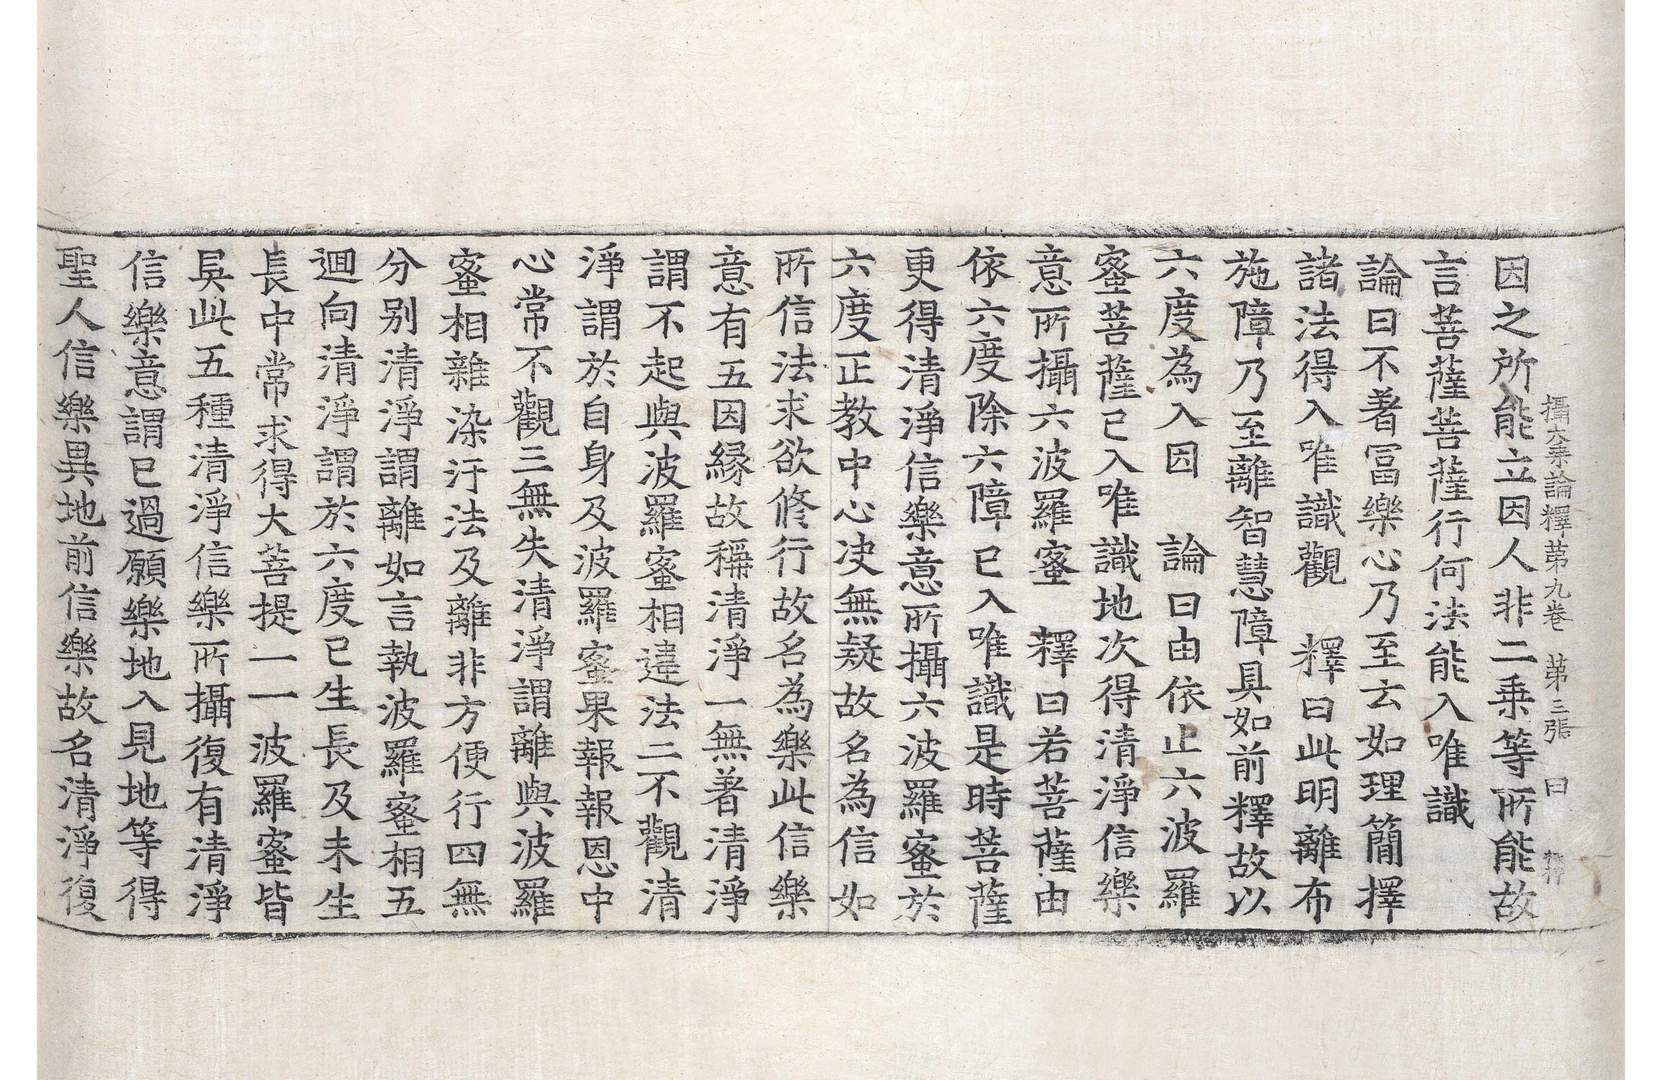 攝大乘論釋第九卷　第三張　曰
因之所能立因人非二乘等所能故
言菩薩菩薩行何法能入唯識
論曰不著冨樂心乃至玄如理簡擇
諸法得入唯識觀　釋曰此明離布
施障乃至離智慧障具如前釋故以
六度為入因　論曰由依止六波羅
蜜菩薩已入唯識地次得清淨信樂
意所攝六波羅蜜　釋曰若菩薩由
依六度除六障已入唯識是時菩薩
更得清淨信樂意所攝六波羅蜜於
六度正教中心决無疑故名為信如
所信法求欲修行故名為樂此信樂
意有五因縁故稱清淨一無著清淨
謂不起與波羅蜜相違法二不觀清
淨謂於自身及波羅蜜果報報恩中
心常不觀三無失清淨謂離與波羅
蜜相雜染汙法及離非方便行四無
分別清淨謂離如言執波羅蜜相五
迴向清淨謂於六度已生長及未生
長中常求得大菩提一一波羅蜜皆
具此五種清淨信樂所攝復有清淨
信樂意謂已過願樂地入見地等得
聖人信樂異地前信樂故名清淨復